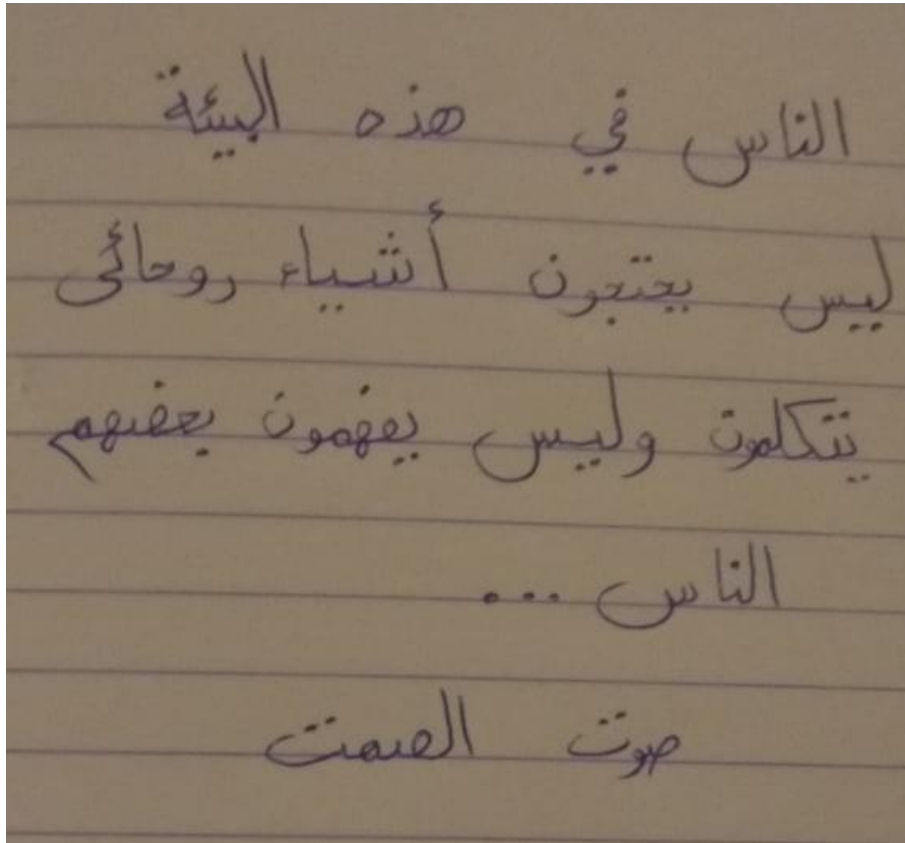 الناس في هذه البيئة
ليس يحتجون أشياء روحائى
يتكلمون وليس يفهمون بعضهم
الناس ...
صوت الصمت